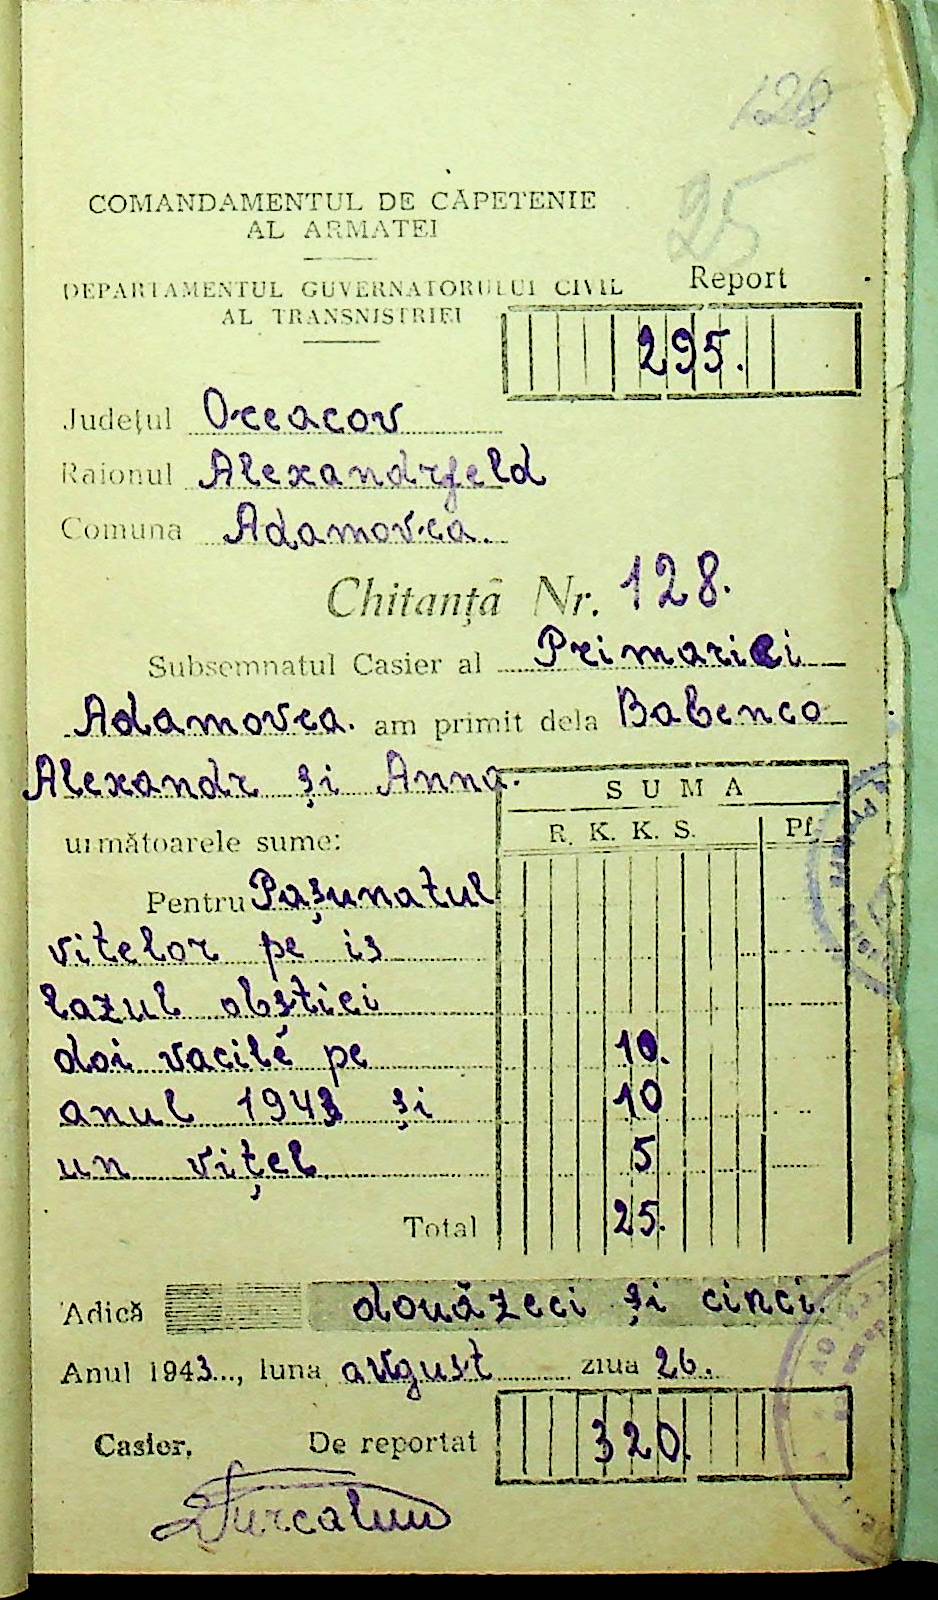 128
25
COMANDAMENTUL DE CĂPETENIE
AL ARMATEI
DEPARTAMENTUL GUVERNATORULUI CIVIL
AL TRANSNISTRIEI
Report
295.
Județul Oceacov
Raionul Alexandrfeld
Comuna Adamovca.
Chitanță Nr. 128.
Subsemnatul Casier al Primariei
Adamovca. am primit dela Babenco
Alexandr și Anna.
SUMA
următoarele sume:
R. K. K. S. Pf.
Pentru Pașunatul
vitelor pe is
lazul obștiei
doi vacile pe 10.
anul 1943 și 10
un vițel 5
Total 25.
Adică douăzeci și cinci.
Anul 1943..., luna avgust ziua 26.
Casier, De reportat 320.